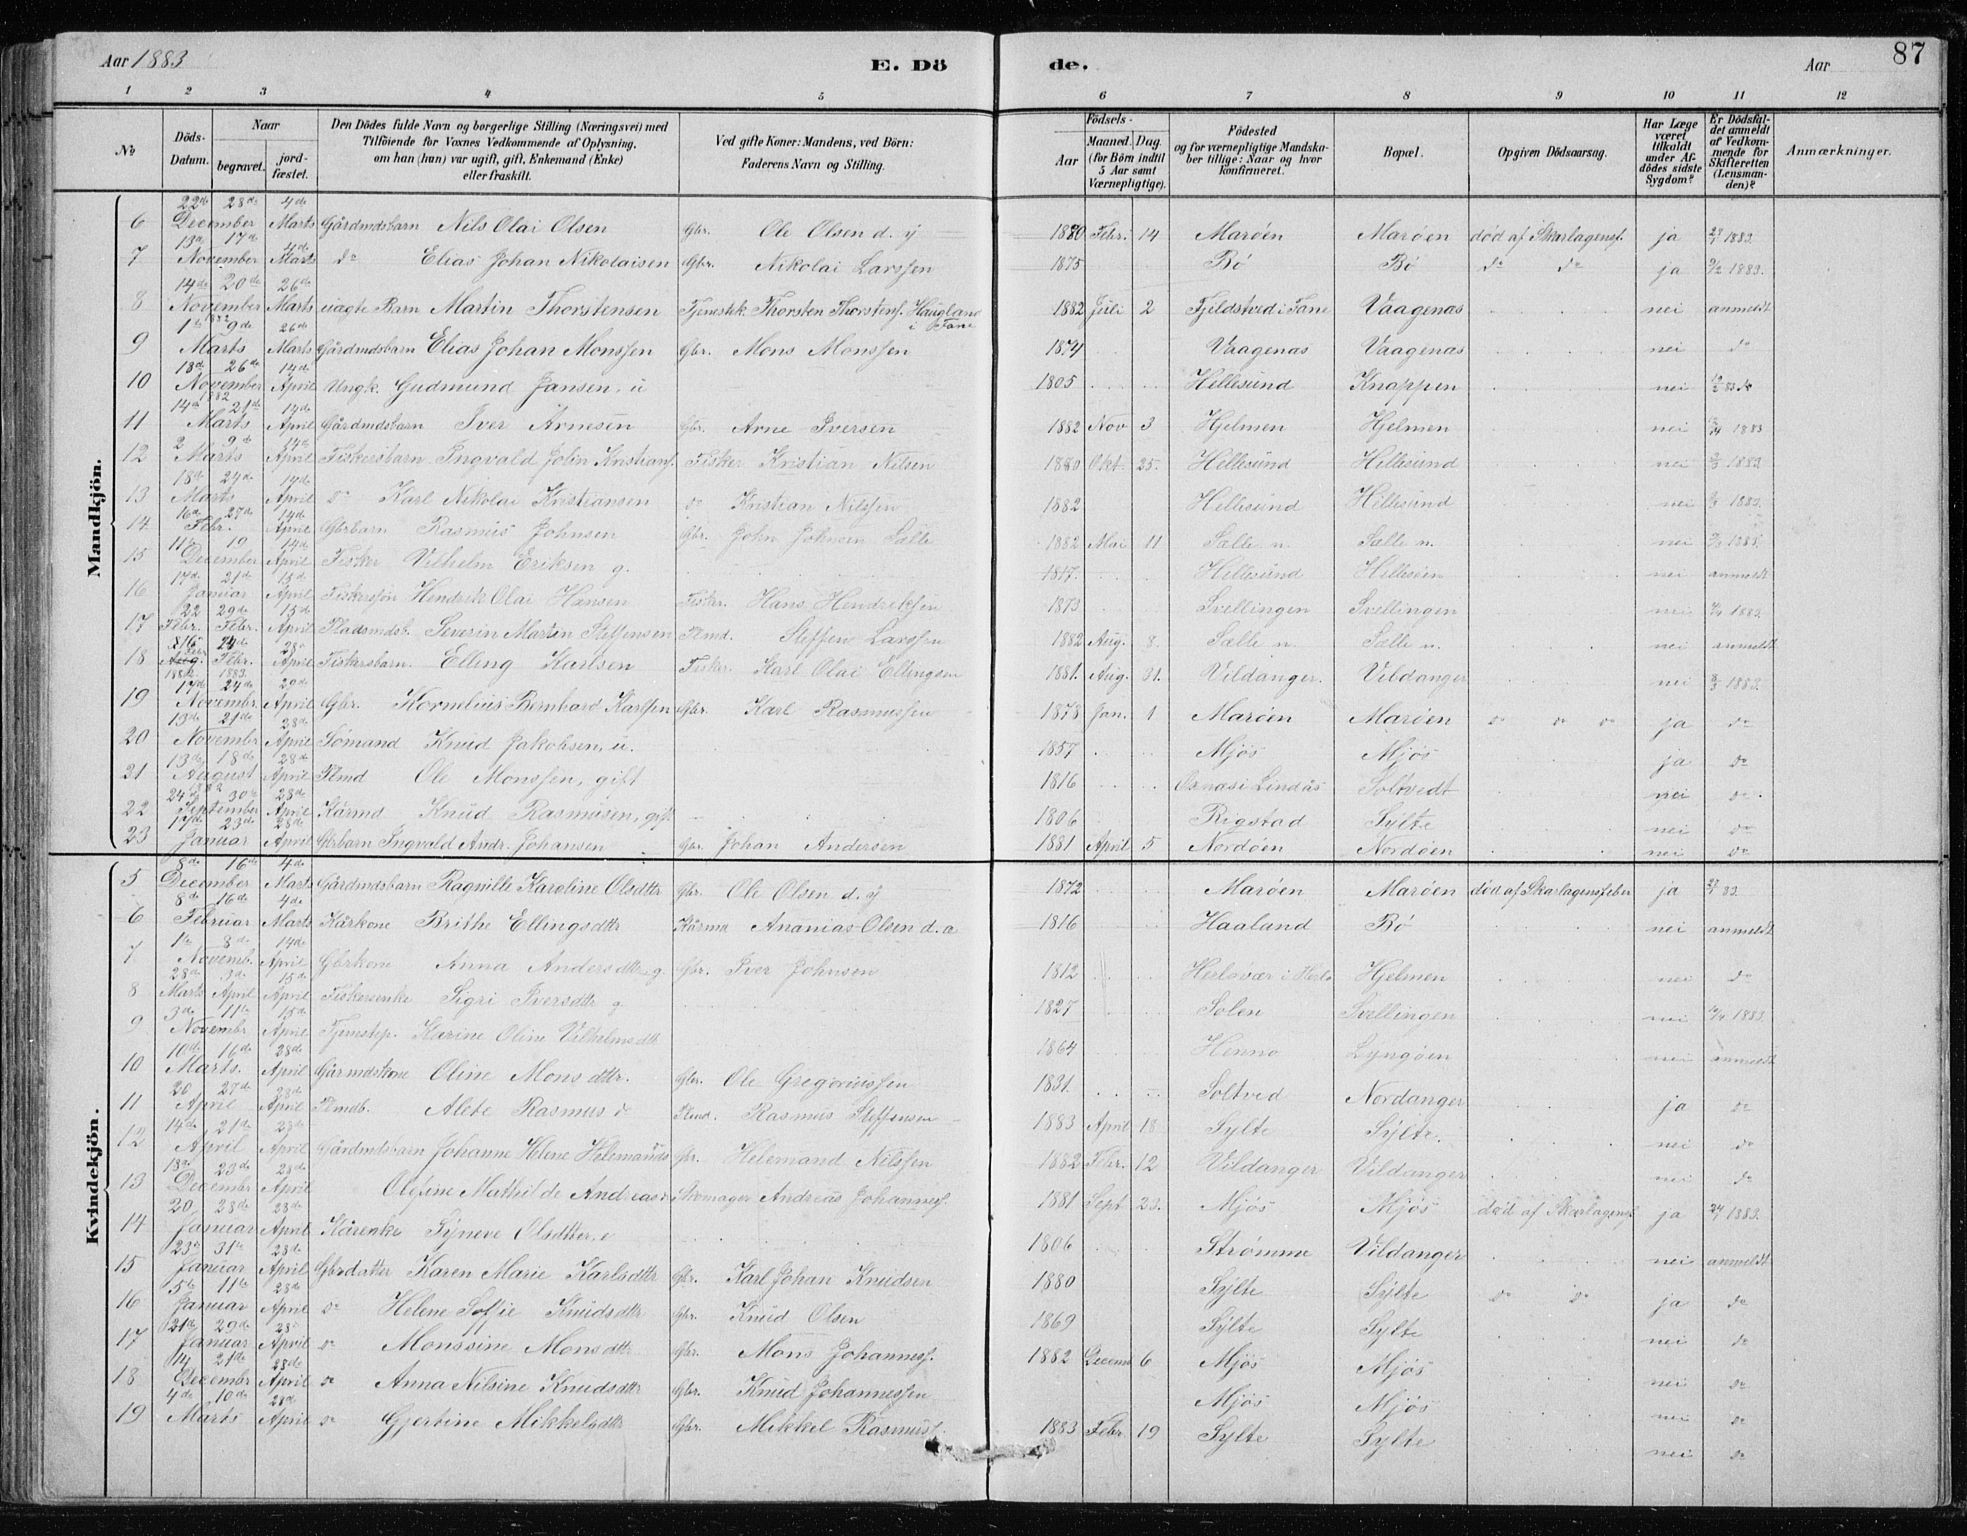 Aar 1883 E. Dö de. Aar 87
1 2 3 4 5 6 7 8 9 10 11 12
No. Döds-Datum. Naar begravet. jordfæstet. Den Dödes fulde Navn og borgerlige Stilling (Næringsvei) med Tilföiende for Voxnes Vedkommende af Oplysning, om han (hun) var ugift, gift, Enkemand (Enke) eller fraskilt. Ved gifte Koner: Mandens, ved Börn: Faderens Navn og Stilling. Födsels- Aar Maaned. Dag. (for Börn indtil 5 Aar samt Værnepligtige). Födested og for værnepligtige Mandskaber tillige: Naar og hvor konfirmeret. Bopæl. Opgiven Dödsaarsag. Har Læge været tilkaldt under Afdödes sidste Sygdom? Er Dödsfaldet anmeldt af Vedkommende for Skifteretten (Lensmanden)? Anmærkninger.
Mandkjön.
6 22de December 28de 4de Marts Gårdmdsbarn Nils Olai Olsen Gbr. Ole Olsen d. y 1880 Febr. 14 Marøen Marøen død af Skarlagensf. ja 1883
7 13de November 17de 4de Marts do Elias Johan Nikolaisen Gbr. Nikolai Larssen 1875 Bø Bø do do ja 9/2 1883.
8 14de November 20de 26de Marts uægte Barn Martin Thorstensen Tjenestk. Thorsten Thorstens. Haugland i Fane 1882 Juli 2 Fjeldstved i Fane Vaagenæs nei anmeldt
9 1882 9de Marts 26de Marts Gårdmdsbarn Elias Johan Monssen Gbr. Mons Monssen 1874 Vaagenæs Vaagenæs nei do
10 18de November 26de 14de April Ungk. Gudmund Jansen, u 1805 Hellesund Knappen nei
11 1882 14de Marts 21de 14de April Gårdmdsbarn Iver Arnesen Gbr. Arne Iversen 1882 Nov 3 Hjelmen Hjelmen nei 1883
12 2 Marts 9de 14de April Fiskersbarn Ingvald John Kristians. Fisker Kristian Nilsen 1880 Okt. 25. Hellesund Hellesund nei 1883
13 18de Marts 24de 14de April do Karl Nikolai Kristiansen do Kristian Nilssen 1882 Hellesund Hillesund nei 1883
14 16de Febr. 27de 14de April Gbrbarn Rasmus Johnsen Gbr. John Johnsen Sælle 1882 Mai 11 Sælle n. Sælle n. nei
15 11te December 19 14de April Fisker Vilhelm Eriksen g. 1817. Hillesund nei anmeldt
16 17de Januar 21de 15de April Fiskersøn Hendrik Olai Hansen Fisker Hans Hendriksen 1873 Svellingen Svellingen nei 1883
17 22 Febr. 29de Febr. 15de April Pladsmdsb. Severin Martin Steffensen Plmd. Steffen Larssen 1882 Aug. 8. Sælle n. Sælle n. nei anmeldt
18 1883. Febr. 24de 28de April Fiskersbarn. Elling Karlsen Fisker Karl Olai Ellingsen 1881. Aug. 31. Vildanger. Vildanger nei 1883
19 17de Novembr. 24de 29de April Gbr. Kornelius Bernhard Karlsen Gbr. Karl Rasmussen 1878 Jan. 1 Marøen Marøen do do do ja do
20 13de Novembr 21de 28de April Sømand Knud Jakobsen, u. 1857 Mjøs Mjøs ja do
21 13de August 18de 28de April Plmd Ole Monssen, gift 1816 Lindås Soltvedt nei do.
22 24de 1882 September 30te 28de April Kårmd Knud Rasmusen, gift 1806 Rigstad Sylte nei do
23 17de Januar 23de 28de April Gbrbarn Ingvald Andr. Johansen Gbr. Johan Andersen 1881 April 5 Nordøen Nordøen nei do
Kvindekjön.
5 8de December 16de 4de Marts Gårdmdsbarn Ragnille Karoline Olsdttr Gbr. Ole Olsen d. y 1872 Marøen Marøen død af Skarlagensfeber ja 83.
6 8de Februar 16de 4de Marts Kårkone Brithe Ellingsdttr Kårmd Ananias Olsen d. æ 1816 Haaland Bø nei anmeldt
7 1te Novemb. 8de 14de April Gbrkone Anna Andersdttr g. Gbr. Iver Johnsen 1812 Herløvær i Herlø Hjelmen nei do
8 28de Marts 3de April 15de April Fiskerenke Sigri Iversdttr g 1827 Solen Svellingen nei 1883.
9 3de Novembr 11te 15de April Tjenestep. Karine Oline Vilhelmsdttr 1864 Henno Lyngøen nei anmeldt
10 10de Marts. 16de 28de April Gårmdskone Oline Monsdttr. Gbr. Ole Gregoriussen 1831. Soltved Nordanger ja do
11 20 April 27de 28de April Plmdb. Alete Rasmusd Plmd. Rasmus Steffensen 1883 April 18 Sylte Sylte. nei do
12 14de April 21de 28de April Gårdmdsbarn Johanne Helene Helemandsd Gbr. Helemand Nilssen 1882 Febr. 12 Vildanger Vildanger nei do
13 18de Decembr 23de 28de April Olefine Mathilde Andreasd Skomager Andreas Johanness. 1881 Sept 23. Mjøs Mjøs død af Skarlagensf. ja 1883.
14 20 Januar 28de 28de April Kårenke Syneve Olsdtter 1806 Strømme Vildanger nei anmeldt
15 23de Januar 31te 28de April Gbrdatter Karen Marie Karlsdttr Gbr. Karl Johan Knudsen 1880 Sylte Sylte do do ja do
16 5te Januar 11te 28de April do Helene Sofie Knudsdttr Gbr. Knud Olsen 1869 Sylte Sylte nei do
17 21de Januar 29de 28de April do Monssine Monsdttr Gbr. Mons Johanness. 1882 Decem 6 Mjøs Mjøs nei do
18 14 Decembr 21de 28de April do Anna Nilsine Knudsdttr Gbr. Knud Johannessen Mjøs Mjøs nei do
19 4de Marts 10de 28de April do Gjertine Mikkelsdttr Gbr. Mikkel Rasmuss. 1883 Febr 19 Sylte Sylte nei do